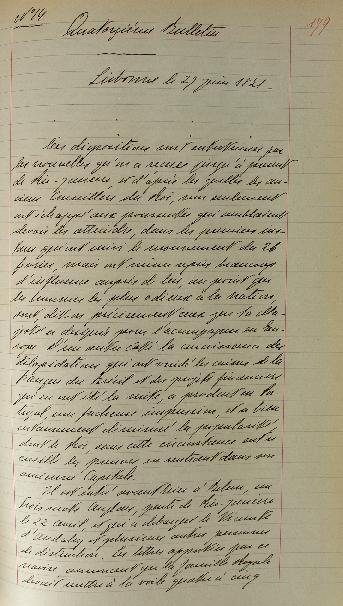 N° 14
179
Quatorzième Bulletin
Lisbonne le 27 juin 1821.
Ces dispositions sont entretenues par
les nouvelles qu'on a reçues jusqu'à présent
de Rio-Janeiro et d'après les quelles les an-
ciens Conseillers du Roi, non seulement
ont échappé aux poursuites qui semblaient
devoir les atteindre, dans les premiers ins-
tans qui ont suivi le mouvement du 26
février, mais ont même repris beaucoup
d'influence auprès de lui au point que
les hommes les plus odieux à la nation,
sont, dit-on précisément ceux que sa Ma-
jesté a désignés pour l'accompagner en Eu-
rope. D'un autre côté la connaissance des
dilapidations qui ont vidé les caisses de la
Banque du Brésil et des projets financiers
qui en ont été la suite, a produit en Por-
tugal, une fâcheuse impression, et a bien
notamment diminué la popularité,
dont le Roi, sans cette circonstance eut
recueilli les preuves en rentrant dans son
ancienne Capitale.
Il est entré avant hier à Belem, un
brick Anglais, parti de Rio-Janeiro
le 22 avril, et qui a débarqué le Vicomte
d'Asseca, et plusieurs autres personnes
de distinction. Les lettres apportées par ce
navire annoncent que la famille Royale
devait mettre à la voile quatre à cinq